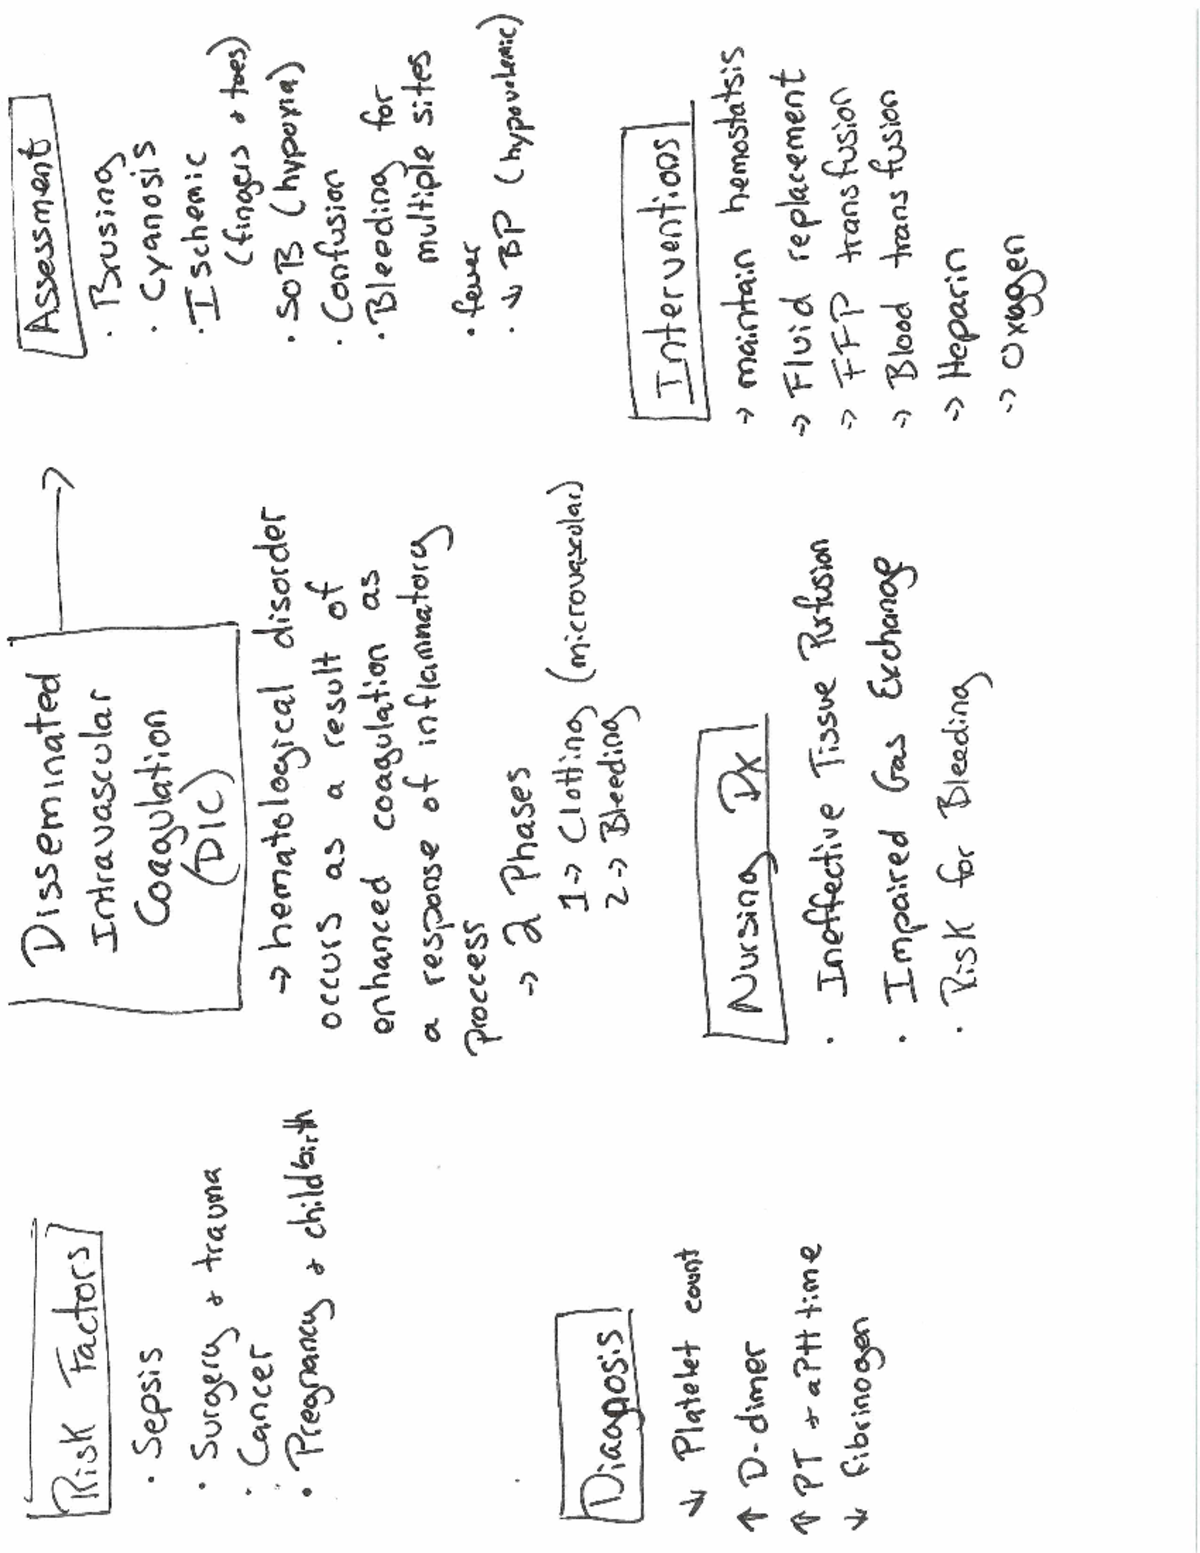 Risk Factors
• Sepsis
• Surgery & trauma
• Cancer
• Pregnancy & childbirth
Disseminated
Intravascular
Coagulation
(DIC)
→ hematological disorder
occurs as a result of
enhanced coagulation as
a response of inflammatory
proccess
→ 2 Phases
1 → Clotting (microvascular)
2 → Bleeding
Assessment
• Brusing
• Cyanosis
• Ischemic
(fingers & toes)
• SOB (hypoxia)
• Confusion
• Bleeding for
multiple sites
• fever
• ↓ BP (hypovolemic)
Diagnosis
↓ Platelet count
↑ D-dimer
↑ PT & aPTT time
↓ fibrinogen
Nursing Dx
• Ineffective Tissue Purfusion
• Impaired Gas Exchange
• Risk for Bleeding
Interventions
→ maintain hemostatsis
→ Fluid replacement
→ FFP transfusion
→ Blood transfusion
→ Heparin
→ Oxygen